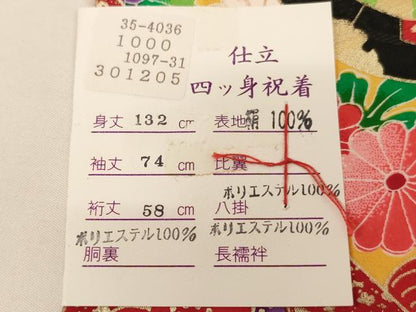 35-4036
1000
1097-31
301205
仕立
四ッ身祝着
身丈 132 cm 表地 絹 100%
袖丈 74 cm 比翼
ポリエステル100%
裄丈 58 cm 八掛
ポリエステル100% ポリエステル100%
胴裏 長襦袢